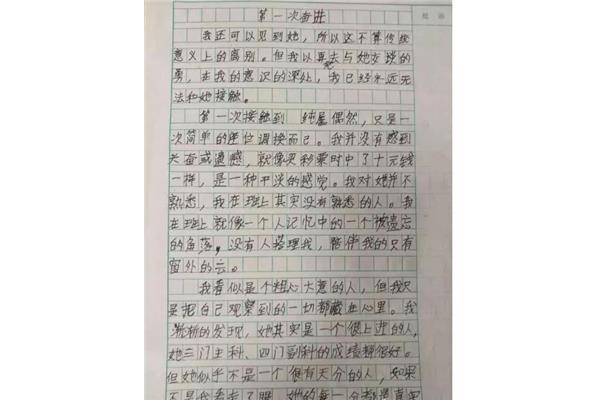 第一次奋进
我还可以见到她，所以这不算传统
意义上的离别。但我以再去与她交谈的
勇，在我的意识的深处，我已经永远无
法和她接触。
第一次接触到 纯是偶然，只是一
次简单的座位调换而已。我并没有感到
兴奋或遗憾，就像买彩票时中了十元钱
一样，是一种平淡的感觉。我对她并不
熟悉，我在班上其实没有熟悉的人。我
在班上就像一个人记忆中的一个被遗忘
的角落，没有人搭理我，陪伴我的只有
窗外的云。
我看似是个粗心大意的人，但我只
是把自己观察到的一切都藏在心里。我
渐渐的发现，她其实是一个很上进的人，
她三门主科、四门副科的成绩都很好。
但她似乎不是一个很有天分的人，如果
不是我看走了眼，她的每一分都是真实